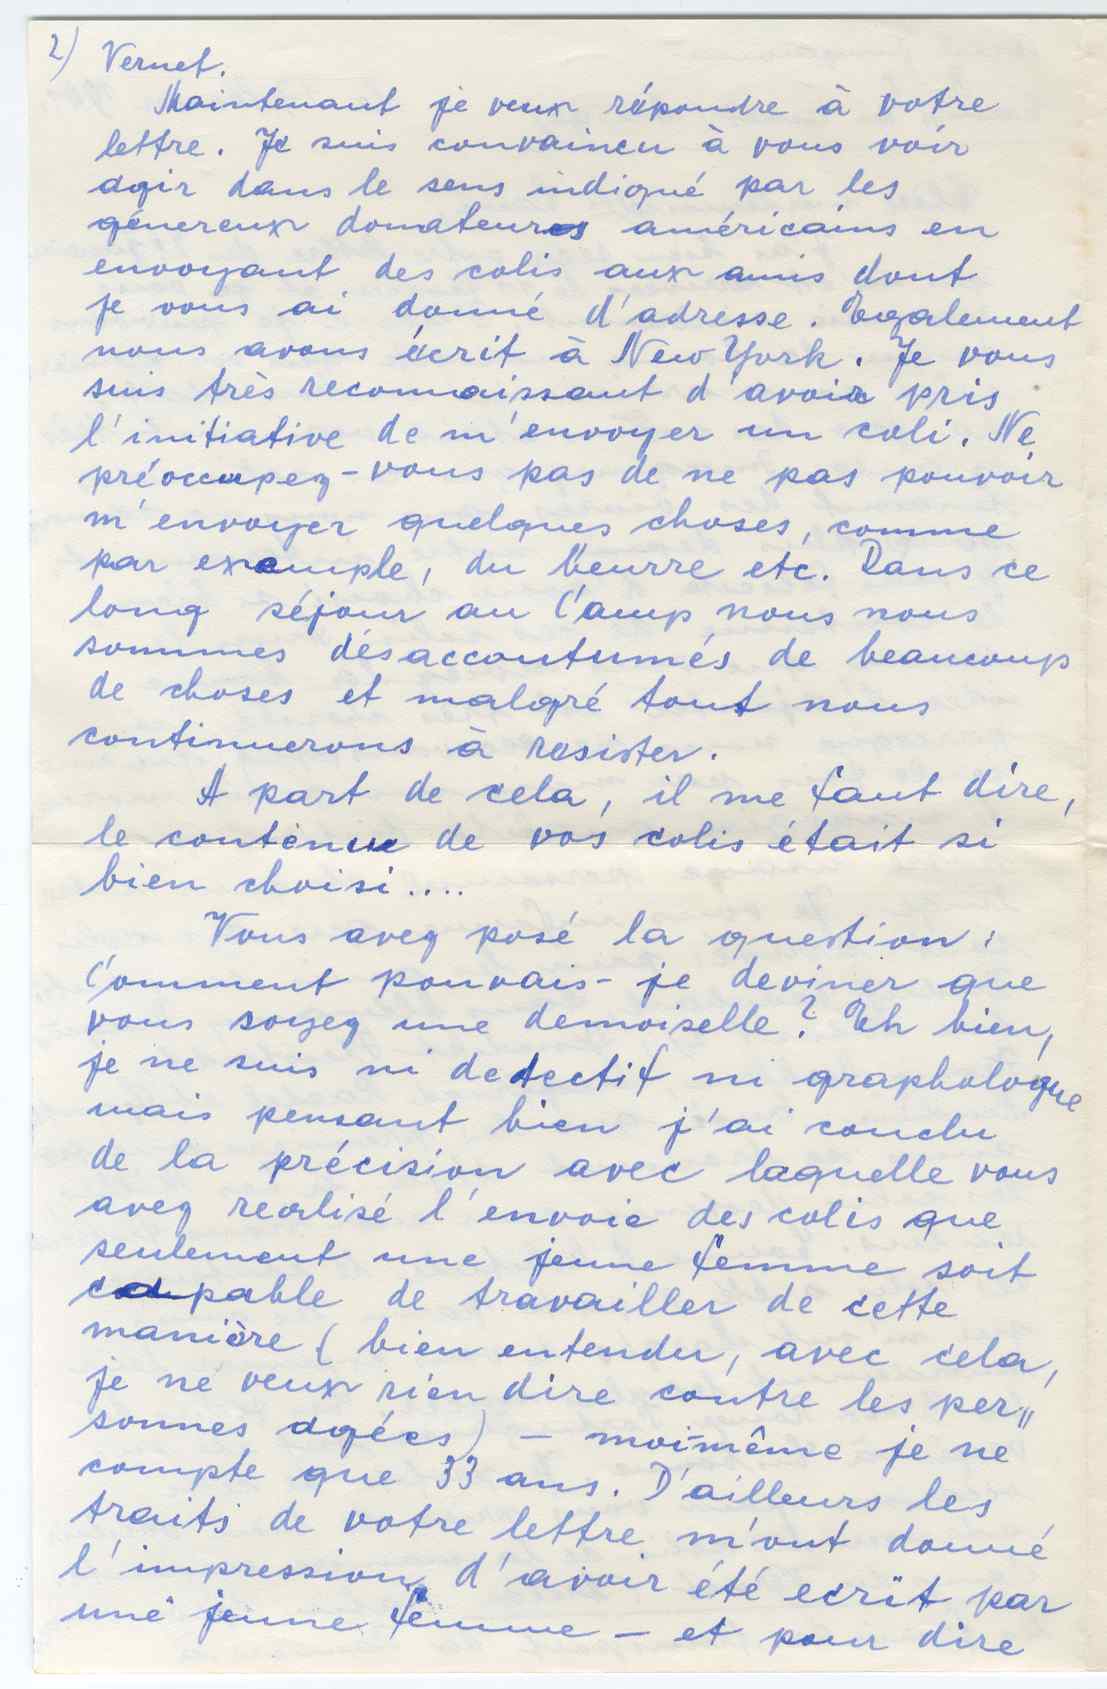 2) Vernet.
Maintenant je veux répondre à votre
lettre. Je suis convaincu à vous voir
agir dans le sens indiqué par les
génereux donateures américains en
envoyant des colis aux amis dont
je vous ai donné d'adresse. Egalement
nous avons écrit à New York. Je vous
suis très reconnaissant d'avoir pris
l'initiative de m'envoyer un coli. Ne
préoccupez-vous pas de ne pas pouvoir
m'envoyer quelques choses, comme
par example, du beurre etc. Dans ce
long séjour au Camp nous nous
sommes désaccoutumés de beaucoup
de choses et malgré tout nous
continuerons à resister.
A part de cela, il me faut dire,
le contenue de vos colis était si
bien choisi....
Vous avez posé la question:
Comment pouvais-je deviner que
vous soyez une demoiselle? Eh bien,
je ne suis ni detectif ni graphologue
mais pensant bien j'ai conclu
de la précision avec laquelle vous
avez realisé l'envoie des colis que
seulement une jeune femme soit
capable de travailler de cette
manière (bien entendu, avec cela,
je ne veux rien dire contre les per„
sonnes agées) - moi-même je ne
compte que 33 ans. D'ailleurs les
traits de votre lettre m'ont donné
l'impression d'avoir été ecrit par
une jeune femme - et pour dire